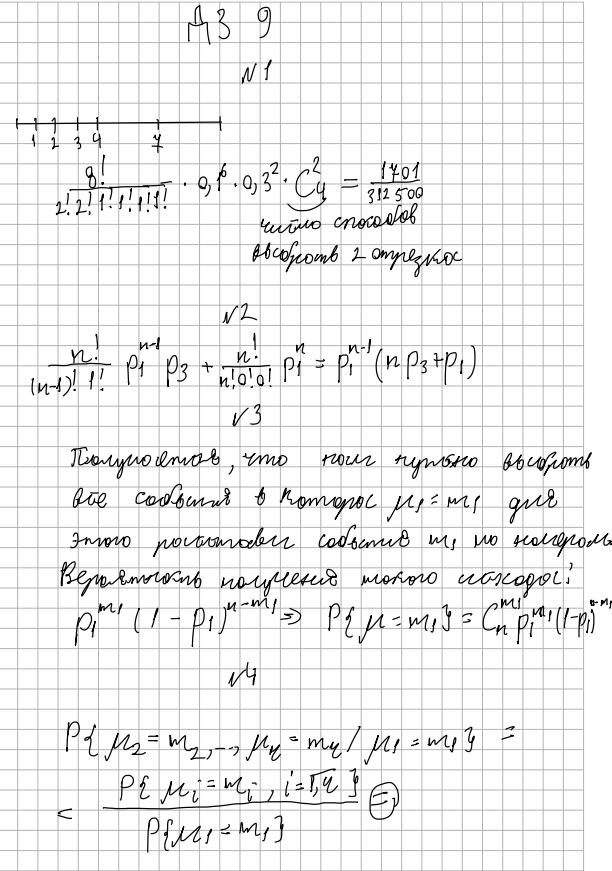 ДЗ 9
№1
1 2 3 4 7
8! / (2! 2! 1! 1! 1! 1!) · 0,1^6 · 0,3^2 · C_4^2 = 1701 / 312500
число способов
выбрать 2 отрезка
№2
n! / ((n-1)! 1!) p_1^{n-1} p_3 + n! / (n! 0! 0!) p_1^n = p_1^{n-1} (n p_3 + p_1)
№3
Получается, что нам нужно выбрать
все события в которых μ_1 = m_1 для
этого расставим события m_1 по номерам.
Вероятность получения такого исхода:
p_1^{m_1} (1 - p_1)^{n-m_1} ⇒ P{μ = m_1} = C_n^{m_1} p_1^{m_1} (1-p_1)^{n-m_1}
№4
P{μ_2 = m_2, ..., μ_4 = m_4 / μ_1 = m_1} =
= P{μ_i = m_i, i = 1,4} / P{μ_1 = m_1} =